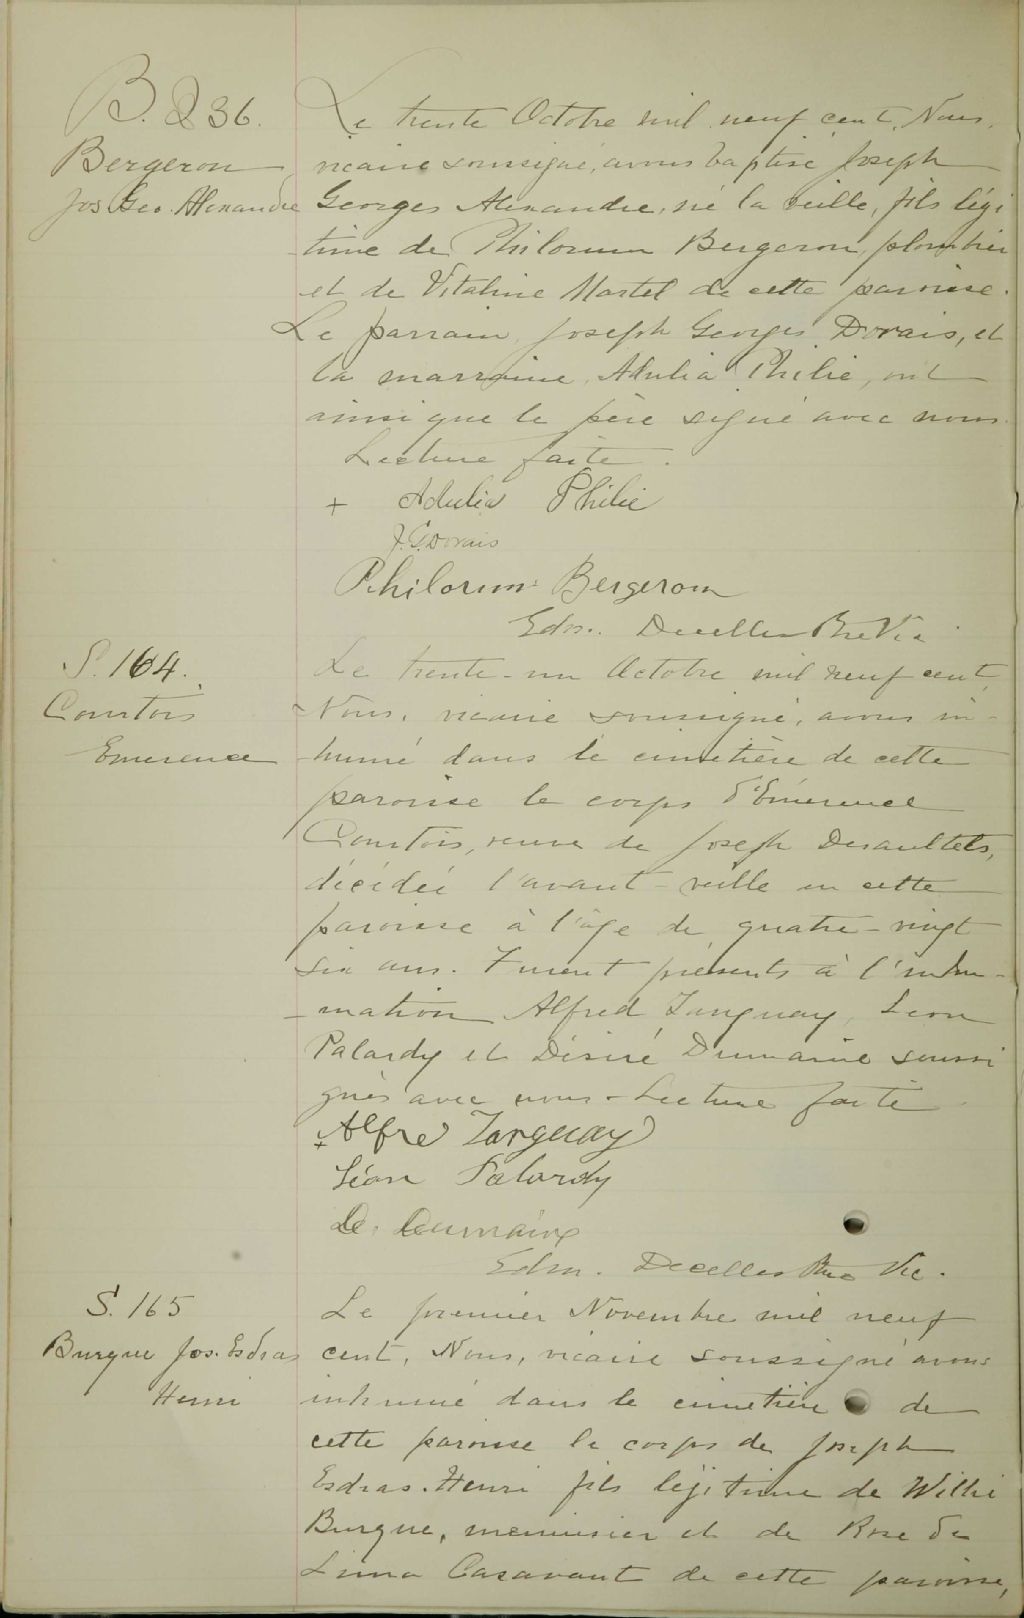 B. 236.
Bergeron
Jos Geo. Alexandre
Le trente Octobre mil neuf cent, Nous,
vicaire soussigné, avons baptisé Joseph
Georges Alexandre, né la veille, fils légi
time de Philorum Bergeron, plombier
et de Vitaline Martel de cette paroisse.
Le parrain, Joseph Georges Dorais, et
la marraine, Adulia Philie, ont
ainsi que le père signé avec nous.
Lecture faite.
+ Adulia Philie
J. G. Dorais
Philorum Bergeron
Edm. Decelles Ptre Vic
S. 164.
Courtois
Emerence
Le trente-un Octobre mil neuf cent,
Nous, vicaire soussigné, avons in-
humé dans le cimetière de cette
paroisse le corps d'Émerence
Courtois, veuve de Joseph Desaultels,
décédée l'avant-veille en cette
paroisse à l'âge de quatre-vingt
six ans. Furent présents à l'inhu-
-mation Alfred Tanguay, Leon
Palardy et Désiré Dumaine soussi
gnés avec nous - Lecture faite
+ Alfre Targuay
Léon Palardy
D. Dumaine
Edm. Decelles Ptre Vic.
S. 165
Burque Jos. Esdras
Henri
Le premier Novembre mil neuf
cent, Nous, vicaire soussigné avons
inhumé dans le cimetière de
cette paroisse le corps de Joseph
Esdras-Henri fils légitime de Willie
Burque, menuisier et de Rose de
Lima Casavant de cette paroisse,